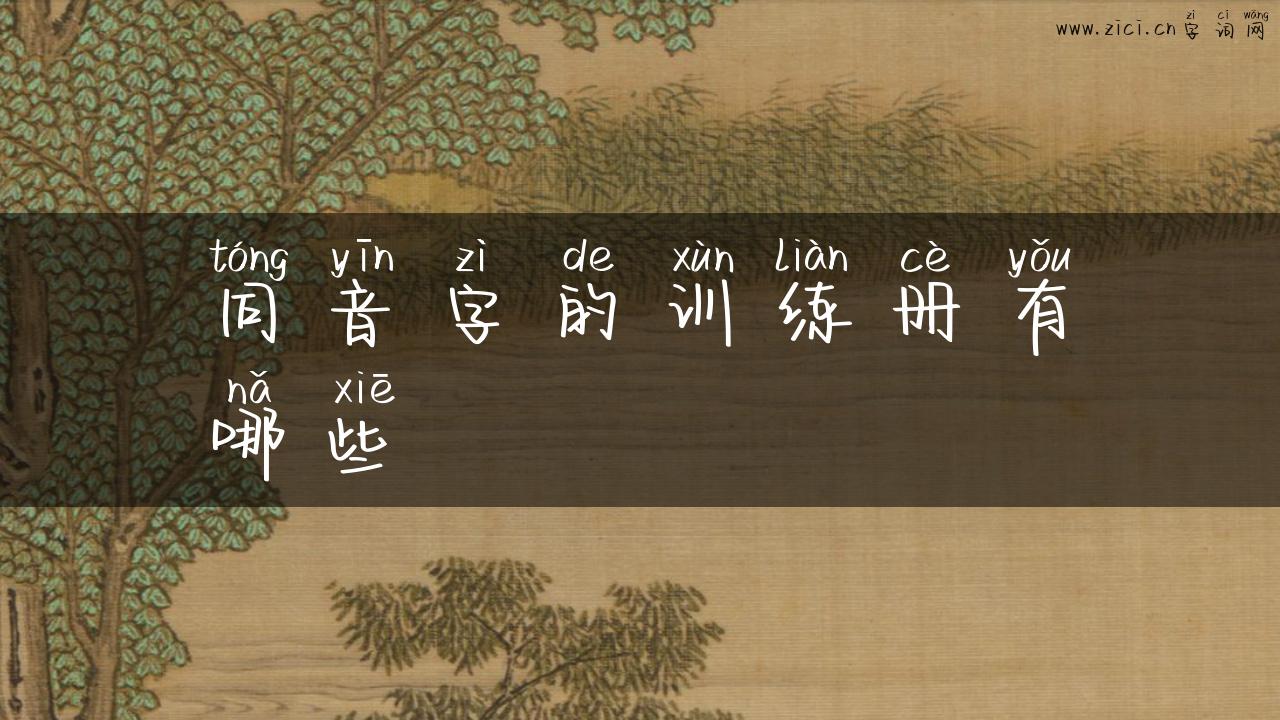 zì cí wǎng
www.zici.cn字词网
tóng yīn zì de xùn liàn cè yǒu
同音字的训练册有
nǎ xiē
哪些